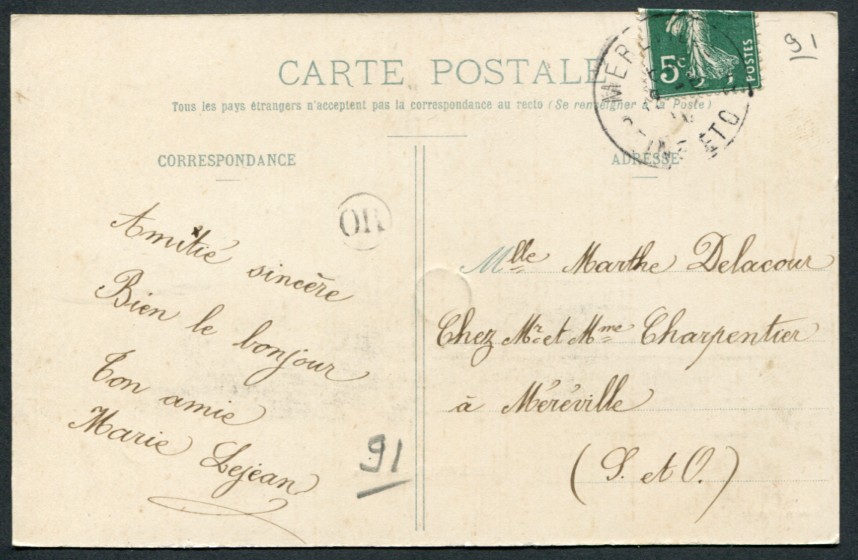 CARTE POSTALE
Tous les pays étrangers n'acceptent pas la correspondance au recto (Se renseigner à la Poste)
CORRESPONDANCE
Amitié sincère
Bien le bonjour
Ton amie
Marie Lejean
OR
91
ADRESSE
Mlle Marthe Delacour
Chez Mr et Mme Charpentier
à Méréville
(S. et O.)
5c
POSTES
91